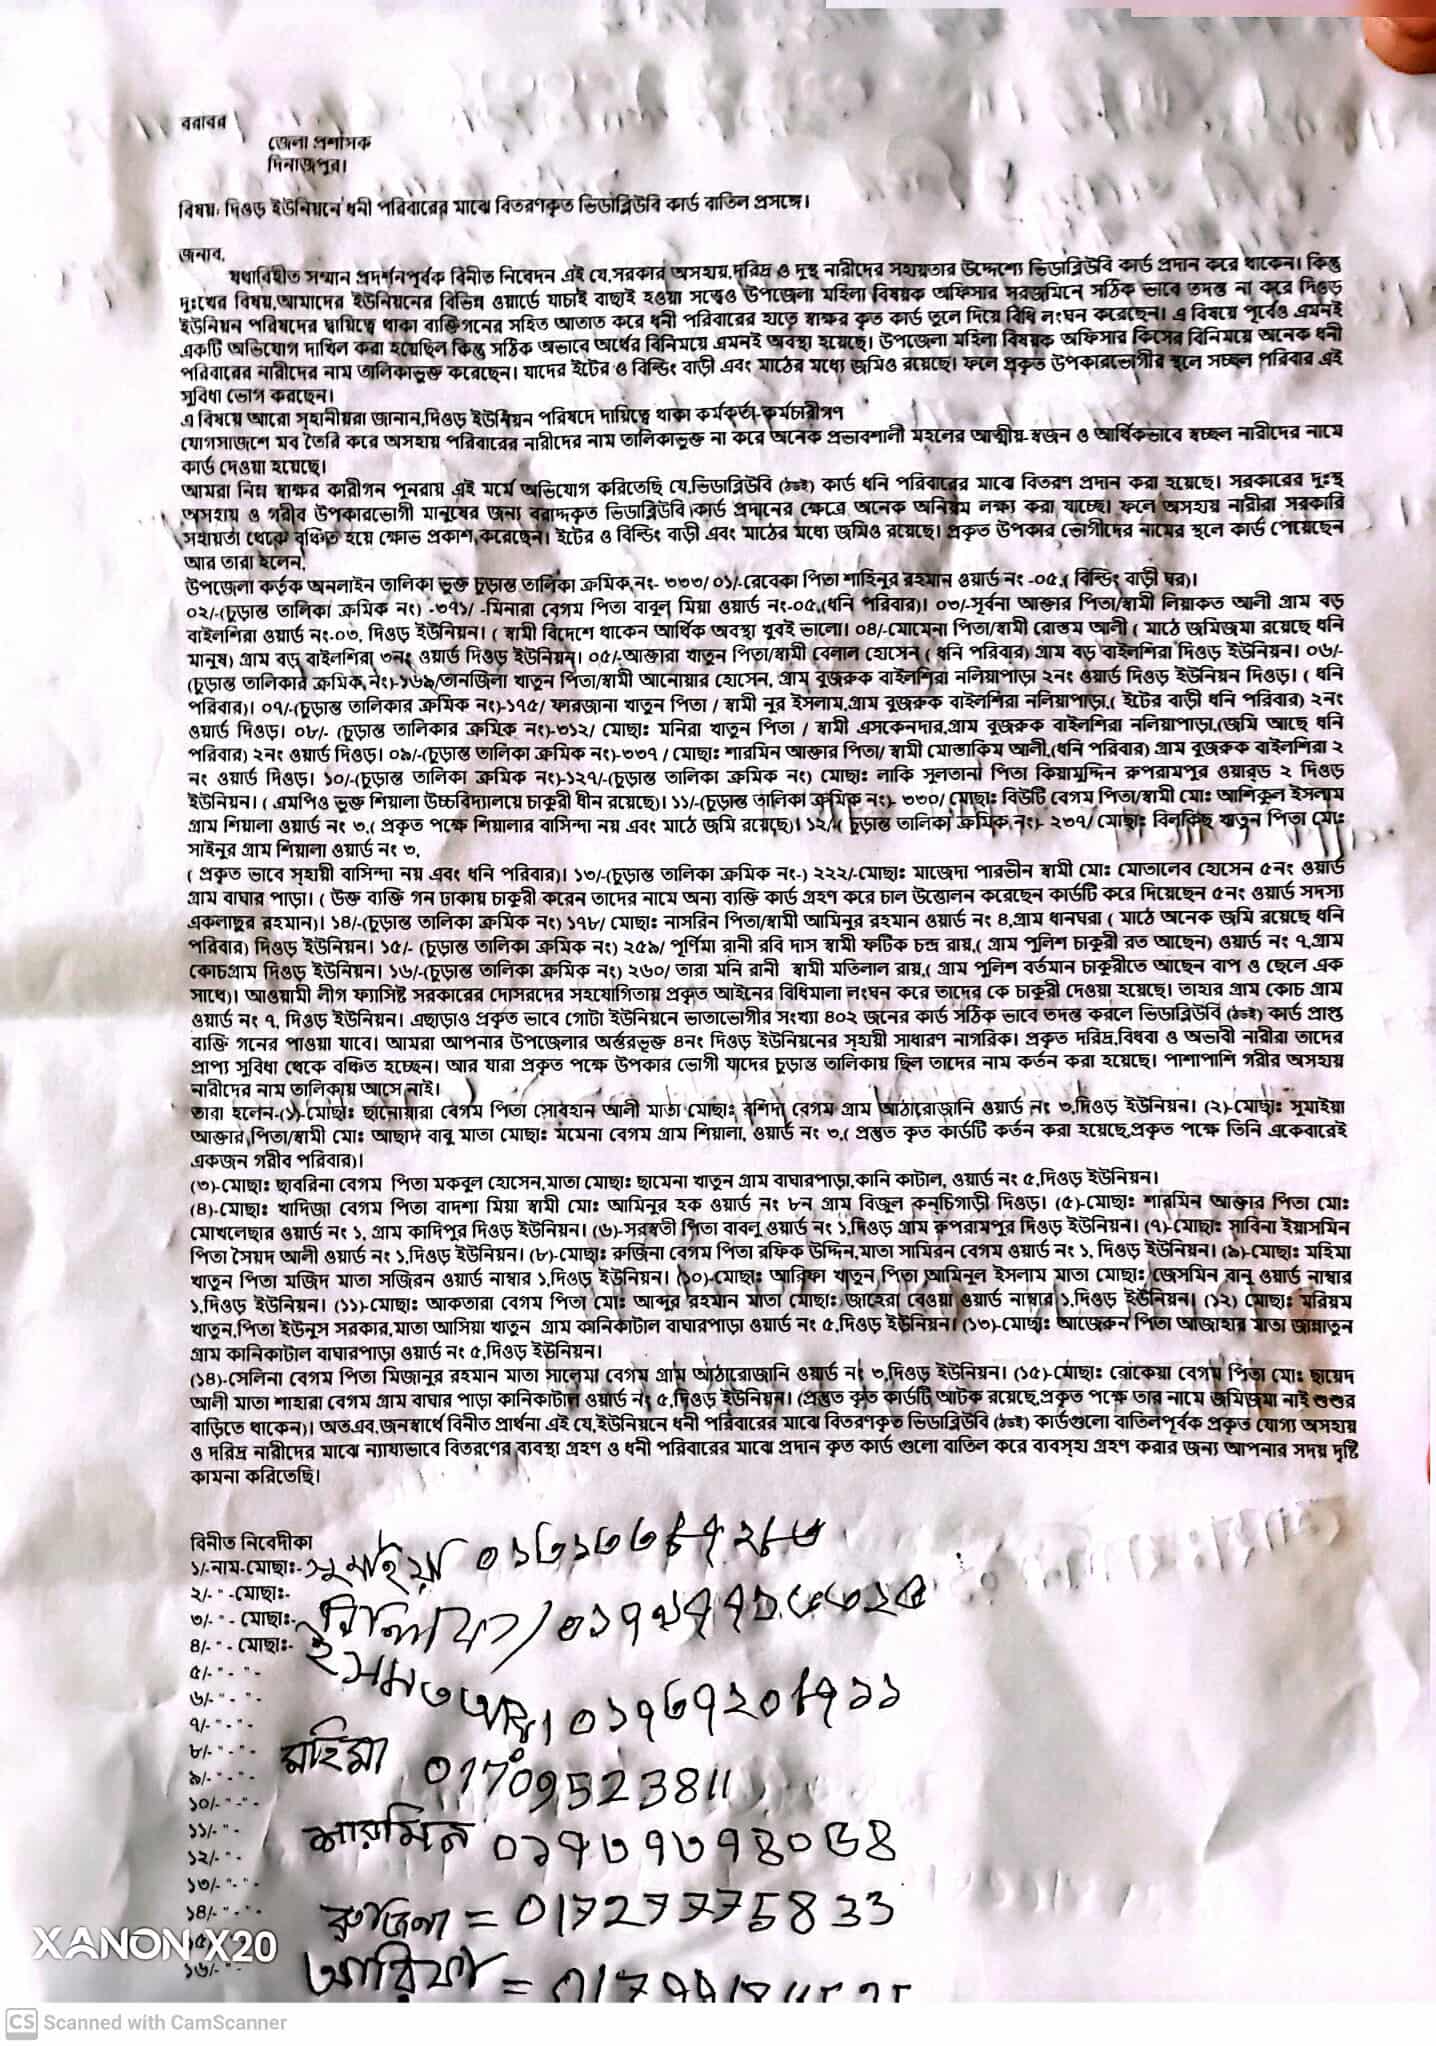 বরাবর
জেলা প্রশাসক
দিনাজপুর।
বিষয়: দিওড় ইউনিয়নে ধনী পরিবারের মাঝে বিতরণকৃত ভিডাব্লিউবি কার্ড বাতিল প্রসঙ্গে।
জনাব,
যথাবিহীত সম্মান প্রদর্শনপূর্বক বিনীত নিবেদন এই যে,সরকার অসহায়,দরিদ্র ও দুস্থ নারীদের সহায়তার উদ্দেশ্যে ভিডাব্লিউবি কার্ড প্রদান করে থাকেন। কিন্তু
দুঃখের বিষয়,আমাদের ইউনিয়নের বিভিন্ন ওয়ার্ডে যাচাই বাছাই হওয়া সত্ত্বেও উপজেলা মহিলা বিষয়ক অফিসার সরজমিনে সঠিক ভাবে তদন্ত না করে দিওড়
ইউনিয়ন পরিষদের দ্বায়িত্বে থাকা ব্যক্তিগনের সহিত আতাত করে ধনী পরিবারের হাতে স্বাক্ষর কৃত কার্ড তুলে দিয়ে বিধি লংঘন করেছেন। এ বিষয়ে পূর্বেও এমনই
একটি অভিযোগ দাখিল করা হয়েছিল কিন্তু সঠিক অভাবে অর্থের বিনিময়ে এমনই অবস্থা হয়েছে। উপজেলা মহিলা বিষয়ক অফিসার কিসের বিনিময়ে অনেক ধনী
পরিবারের নারীদের নাম তালিকাভুক্ত করেছেন। যাদের ইটের ও বিল্ডিং বাড়ী এবং মাঠের মধ্যে জমিও রয়েছে। ফলে প্রকৃত উপকারভোগীর স্থলে সচ্ছল পরিবার এই
সুবিধা ভোগ করছেন।
এ বিষয়ে আরো স্হানীয়রা জানান,দিওড় ইউনিয়ন পরিষদে দায়িত্বে থাকা কর্মকর্তা-কর্মচারীগণ
যোগসাজশে মব তৈরি করে অসহায় পরিবারের নারীদের নাম তালিকাভুক্ত না করে অনেক প্রভাবশালী মহলের আত্মীয়-স্বজন ও আর্থিকভাবে স্বচ্ছল নারীদের নামে
কার্ড দেওয়া হয়েছে।
আমরা নিম্ন স্বাক্ষর কারীগন পুনরায় এই মর্মে অভিযোগ করিতেছি যে,ভিডাব্লিউবি কার্ড ধনি পরিবারের মাঝে বিতরণ প্রদান করা হয়েছে। সরকারের দুঃস্থ
অসহায় ও গরীব উপকারভোগী মানুষের জন্য বরাদ্দকৃত ভিডাব্লিউবি কার্ড প্রদানের ক্ষেত্রে অনেক অনিয়ম লক্ষ্য করা যাচ্ছে। ফলে অসহায় নারীরা সরকারি
সহায়তা থেকে বঞ্চিত হয়ে ক্ষোভ প্রকাশ করেছেন। ইটের ও বিল্ডিং বাড়ী এবং মাঠের মধ্যে জমিও রয়েছে। প্রকৃত উপকার ভোগীদের নামের স্থলে কার্ড পেয়েছেন
আর তারা হলেন,
উপজেলা কর্তৃক অনলাইন তালিকা ভুক্ত চুড়ান্ত তালিকা ক্রমিক,নং- ৩৩৩/ ০১/-রেবেকা পিতা শাহিনুর রহমান ওয়ার্ড নং -০৫,( বিল্ডিং বাড়ী ঘর)।
০২/-(চুড়ান্ত তালিকা ক্রমিক নং) -৩৭১/ -মিনারা বেগম পিতা বাবুল মিয়া ওয়ার্ড নং-০৫,(ধনি পরিবার)। ০৩/-সূর্বনা আক্তার পিতা/স্বামী লিয়াকত আলী গ্রাম বড়
বাইলশিরা ওয়ার্ড নং-০৩, দিওড় ইউনিয়ন। ( স্বামী বিদেশে থাকেন আর্থিক অবস্থা খুবই ভালো। ০৪/-মোমেনা পিতা/স্বামী রোস্তম আলী ( মাঠে জমিজমা রয়েছে ধনি
মানুষ) গ্রাম বড় বাইলশিরা ৩নং ওয়ার্ড দিওড় ইউনিয়ন। ০৫/-আক্তারা খাতুন পিতা/স্বামী বেলাল হোসেন ( ধনি পরিবার) গ্রাম বড় বাইলশিরা দিওড় ইউনিয়ন। ০৬/-
(চুড়ান্ত তালিকার ক্রমিক,নং)-১৬৯/তানজিলা খাতুন পিতা/স্বামী আনোয়ার হোসেন, গ্রাম বুজরুক বাইলশিরা নলিয়াপাড়া ২নং ওয়ার্ড দিওড় ইউনিয়ন দিওড়। ( ধনি
পরিবার)। ০৭/-(চুড়ান্ত তালিকার ক্রমিক নং)-১৭৫/ ফারজানা খাতুন পিতা / স্বামী নুর ইসলাম,গ্রাম বুজরুক বাইলশিরা নলিয়াপাড়া,( ইটের বাড়ী ধনি পরিবার) ২নং
ওয়ার্ড দিওড়। ০৮/- (চুড়ান্ত তালিকার ক্রমিক নং)-৩১২/ মোছাঃ মনিরা খাতুন পিতা / স্বামী এসকেনদার,গ্রাম বুজরুক বাইলশিরা নলিয়াপাড়া,(জমি আছে ধনি
পরিবার) ২নং ওয়ার্ড দিওড়। ০৯/-(চুড়ান্ত তালিকা ক্রমিক নং)-৩৩৭ / মোছাঃ শারমিন আক্তার পিতা/ স্বামী মোস্তাকিম আলী,(ধনি পরিবার) গ্রাম বুজরুক বাইলশিরা ২
নং ওয়ার্ড দিওড়। ১০/-(চুড়ান্ত তালিকা ক্রমিক নং)-১২৭/-(চুড়ান্ত তালিকা ক্রমিক নং) মোছাঃ লাকি সুলতানা পিতা কিয়ামুদ্দিন রুপরামপুর ওয়ার্ড ২ দিওড়
ইউনিয়ন। ( এমপিও ভুক্ত শিয়ালা উচ্চবিদ্যালয়ে চাকুরী ধীন রয়েছে)। ১১/-(চুড়ান্ত তালিকা ক্রমিক নং)- ৩৩০/ মোছাঃ বিউটি বেগম পিতা/স্বামী মোঃ আশিকুল ইসলাম
গ্রাম শিয়ালা ওয়ার্ড নং ৩,( প্রকৃত পক্ষে শিয়ালার বাসিন্দা নয় এবং মাঠে জমি রয়েছে)। ১২/-( চুড়ান্ত তালিকা ক্রমিক,নং)- ২৩৭/ মোছাঃ বিলকিছ খাতুন পিতা মোঃ
সাইনুর গ্রাম শিয়ালা ওয়ার্ড নং ৩,
( প্রকৃত ভাবে স্হায়ী বাসিন্দা নয় এবং ধনি পরিবার)। ১৩/-(চুড়ান্ত তালিকা ক্রমিক নং-) ২২২/-মোছাঃ মাজেদা পারভীন স্বামী মোঃ মোতালেব হোসেন ৫নং ওয়ার্ড
গ্রাম বাঘার পাড়া। ( উক্ত ব্যক্তি গন ঢাকায় চাকুরী করেন তাদের নামে অন্য ব্যক্তি কার্ড গ্রহণ করে চাল উত্তোলন করেছেন কার্ডটি করে দিয়েছেন ৫নং ওয়ার্ড সদস্য
একলাছুর রহমান)। ১৪/-(চুড়ান্ত তালিকা ক্রমিক নং) ১৭৮/ মোছাঃ নাসরিন পিতা/স্বামী আমিনুর রহমান ওয়ার্ড নং ৪,গ্রাম ধানঘরা ( মাঠে অনেক জমি রয়েছে ধনি
পরিবার) দিওড় ইউনিয়ন। ১৫/- (চুড়ান্ত তালিকা ক্রমিক নং) ২৫৯/ পূর্ণিমা রানী রবি দাস স্বামী ফটিক চন্দ্র রায়,( গ্রাম পুলিশ চাকুরী রত আছেন) ওয়ার্ড নং ৭,গ্রাম
কোচগ্রাম দিওড় ইউনিয়ন। ১৬/-(চুড়ান্ত তালিকা ক্রমিক নং) ২৬০/ তারা মনি রানী স্বামী মতিলাল রায়,( গ্রাম পুলিশ বর্তমান চাকুরীতে আছেন বাপ ও ছেলে এক
সাথে)। আওয়ামী লীগ ফ্যাসিষ্ট সরকারের দোসরদের সহযোগিতায় প্রকৃত আইনের বিধিমালা লংঘন করে তাদের কে চাকুরী দেওয়া হয়েছে। তাহার গ্রাম কোচ গ্রাম
ওয়ার্ড নং ৭, দিওড় ইউনিয়ন। এছাড়াও প্রকৃত ভাবে গোটা ইউনিয়নে ভাতাভোগীর সংখ্যা ৪০২ জনের কার্ড সঠিক ভাবে তদন্ত করলে ভিডাব্লিউবি কার্ড প্রাপ্ত
ব্যক্তি গনের পাওয়া যাবে। আমরা আপনার উপজেলার অন্তরভূক্ত ৪নং দিওড় ইউনিয়নের স্হায়ী সাধারণ নাগরিক। প্রকৃত দরিদ্র,বিধবা ও অভাবী নারীরা তাদের
প্রাপ্য সুবিধা থেকে বঞ্চিত হচ্ছেন। আর যারা প্রকৃত পক্ষে উপকার ভোগী যাদের চুড়ান্ত তালিকায় ছিল তাদের নাম কর্তন করা হয়েছে। পাশাপাশি গরীর অসহায়
নারীদের নাম তালিকায় আসে নাই।
তারা হলেন-(১)-মোছাঃ ছানোয়ারা বেগম পিতা সোবহান আলী মাতা মোছাঃ রশিদা বেগম গ্রাম আঠারোজানি ওয়ার্ড নং ৩,দিওড় ইউনিয়ন। (২)-মোছাঃ সুমাইয়া
আক্তার,পিতা/স্বামী মোঃ আছাদ বাবু মাতা মোছাঃ মমেনা বেগম গ্রাম শিয়ালা, ওয়ার্ড নং ৩,( প্রস্তুত কৃত কার্ডটি কর্তন করা হয়েছে,প্রকৃত পক্ষে তিনি একেবারেই
একজন গরীব পরিবার)।
(৩)-মোছাঃ ছাবরিনা বেগম পিতা মকবুল হোসেন,মাতা মোছাঃ ছামেনা খাতুন গ্রাম বাঘারপাড়া,কানি কাটাল, ওয়ার্ড নং ৫,দিওড় ইউনিয়ন।
(৪)-মোছাঃ খাদিজা বেগম পিতা বাদশা মিয়া স্বামী মোঃ আমিনুর হক ওয়ার্ড নং ৮ন গ্রাম বিজুল কনচিগাড়ী দিওড়। (৫)-মোছাঃ শারমিন আক্তার পিতা মোঃ
মোখলেছার ওয়ার্ড নং ১, গ্রাম কাদিপুর দিওড় ইউনিয়ন। (৬)-সরস্বতী পিতা বাবলু ওয়ার্ড নং ১,দিওড় গ্রাম রুপরামপুর দিওড় ইউনিয়ন। (৭)-মোছাঃ সাবিনা ইয়াসমিন
পিতা সৈয়দ আলী ওয়ার্ড নং ১,দিওড় ইউনিয়ন। (৮)-মোছাঃ রুজিনা বেগম পিতা রফিক উদ্দিন,মাতা সামিরন বেগম ওয়ার্ড নং ১, দিওড় ইউনিয়ন। (৯)-মোছাঃ মহিমা
খাতুন পিতা মজিদ মাতা সজিরন ওয়ার্ড নাম্বার ১,দিওড় ইউনিয়ন। (১০)-মোছাঃ আরিফা খাতুন পিতা আমিনুল ইসলাম মাতা মোছাঃ জেসমিন বানু ওয়ার্ড নাম্বার
১,দিওড় ইউনিয়ন। (১১)-মোছাঃ আকতারা বেগম পিতা মোঃ আব্দুর রহমান মাতা মোছাঃ জাহেরা বেওয়া ওয়ার্ড নাম্বার ১,দিওড় ইউনিয়ন। (১২) মোছাঃ মরিয়ম
খাতুন,পিতা ইউনুস সরকার,মাতা আসিয়া খাতুন গ্রাম কানিকাটাল বাঘারপাড়া ওয়ার্ড নং ৫,দিওড় ইউনিয়ন। (১৩)-মোছাঃ আজেরুন পিতা আজাহার মাতা জান্নাতুন
গ্রাম কানিকাটাল বাঘারপাড়া ওয়ার্ড নং ৫,দিওড় ইউনিয়ন।
(১৪)-সেলিনা বেগম পিতা মিজানুর রহমান মাতা সালেমা বেগম গ্রাম আঠারোজানি ওয়ার্ড নং ৩,দিওড় ইউনিয়ন। (১৫)-মোছাঃ রোকেয়া বেগম পিতা মোঃ ছায়েদ
আলী মাতা শাহারা বেগম গ্রাম বাঘার পাড়া কানিকাটাল ওয়ার্ড নং ৫,দিওড় ইউনিয়ন। (প্রস্তুত কৃত কার্ডটি আটক রয়েছে,প্রকৃত পক্ষে তার নামে জমিজমা নাই শুশুর
বাড়িতে থাকেন)। অতএব,জনস্বার্থে বিনীত প্রার্থনা এই যে,ইউনিয়নে ধনী পরিবারের মাঝে বিতরণকৃত ভিডাব্লিউবি কার্ডগুলো বাতিলপূর্বক প্রকৃত যোগ্য অসহায়
ও দরিদ্র নারীদের মাঝে ন্যায্যভাবে বিতরণের ব্যবস্থা গ্রহণ ও ধনী পরিবারের মাঝে প্রদান কৃত কার্ড গুলো বাতিল করে ব্যবস্হা গ্রহণ করার জন্য আপনার সদয় দৃষ্টি
কামনা করিতেছি।
বিনীত নিবেদীকা
১/-নাম-মোছাঃ- সুমাইয়া
২/- " -মোছাঃ-
৩/- " - মোছাঃ-
৪/- " - মোছাঃ-
৫/- " - " -
৬/- " - " -
৭/- " - " -
৮/- " - " - মহিমা 01709523811
৯/- " - " -
১০/- " - " -
১১/- " - শারমিন
১২/- " -
১৩/- " - " -
১৪/- " - " - রুজিনা = 01727775833
১৫/-
১৬/- " - আরিফা =
XANON X20
CS Scanned with CamScanner